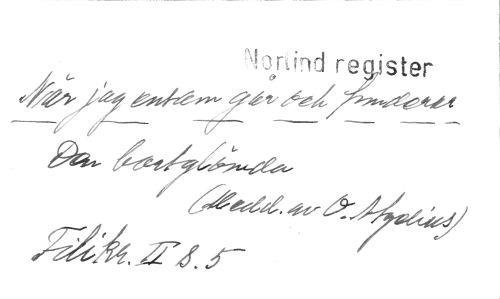 Norlind register
När jag ensam går och funderar
Den bortglömda
(Medd. av O. Hyckius)
Filikr. II s. 5